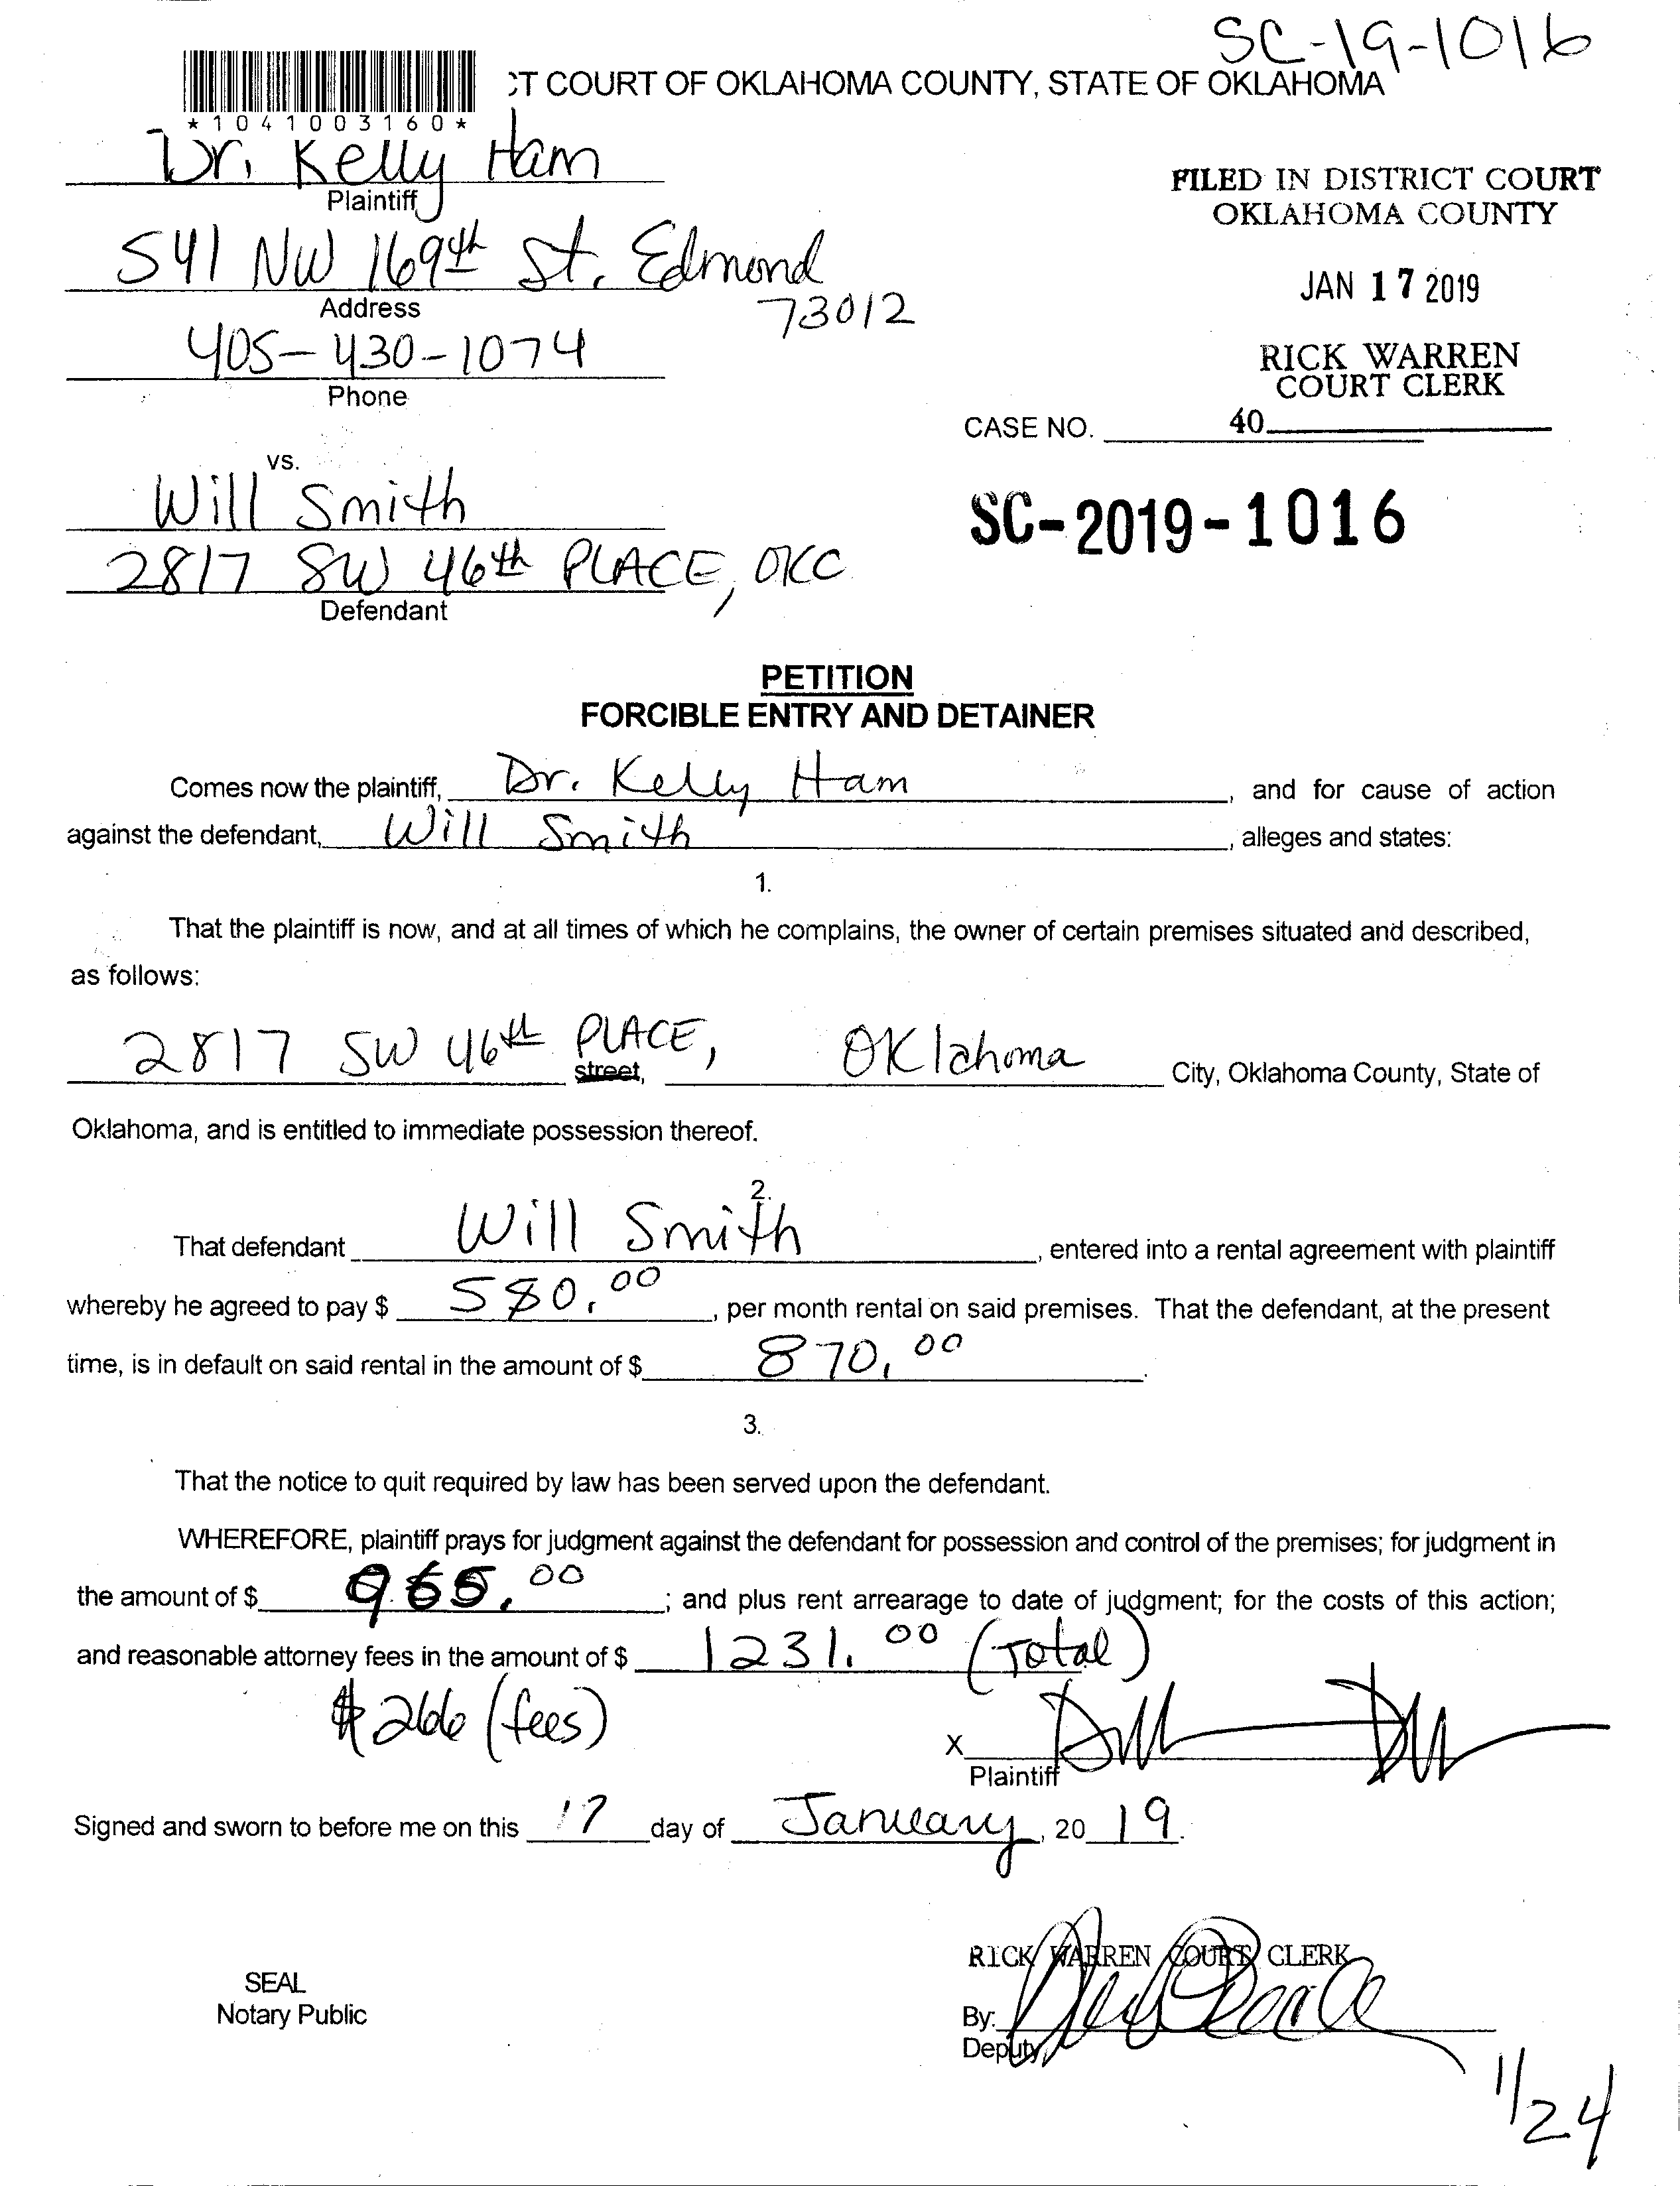 SC-19-1016
T COURT OF OKLAHOMA COUNTY, STATE OF OKLAHOMA
*1041003160*
Dr. Kelly Ham
Plaintiff
FILED IN DISTRICT COURT
OKLAHOMA COUNTY
541 NW 169th St. Edmond
73012
Address
JAN 17 2019
405-430-1074
Phone
RICK WARREN
COURT CLERK
CASE NO. 40
vs.
Will Smith
SC-2019-1016
2817 SW 46th PLACE, OKC
Defendant
PETITION
FORCIBLE ENTRY AND DETAINER
Comes now the plaintiff, Dr. Kelly Ham, and for cause of action
against the defendant, Will Smith, alleges and states:
1.
That the plaintiff is now, and at all times of which he complains, the owner of certain premises situated and described,
as follows:
2817 SW 46th PLACE, street, Oklahoma City, Oklahoma County, State of
Oklahoma, and is entitled to immediate possession thereof.
2.
That defendant Will Smith, entered into a rental agreement with plaintiff
whereby he agreed to pay $ 580.00, per month rental on said premises. That the defendant, at the present
time, is in default on said rental in the amount of $ 870.00.
3.
That the notice to quit required by law has been served upon the defendant.
WHEREFORE, plaintiff prays for judgment against the defendant for possession and control of the premises; for judgment in
the amount of $ 965.00; and plus rent arrearage to date of judgment; for the costs of this action;
and reasonable attorney fees in the amount of $ 1231.00 (Total)
$266 (fees)
X
Plaintiff
Signed and sworn to before me on this 17 day of January, 2019.
RICK WARREN COURT CLERK
SEAL
Notary Public
By:
Deputy
1/24